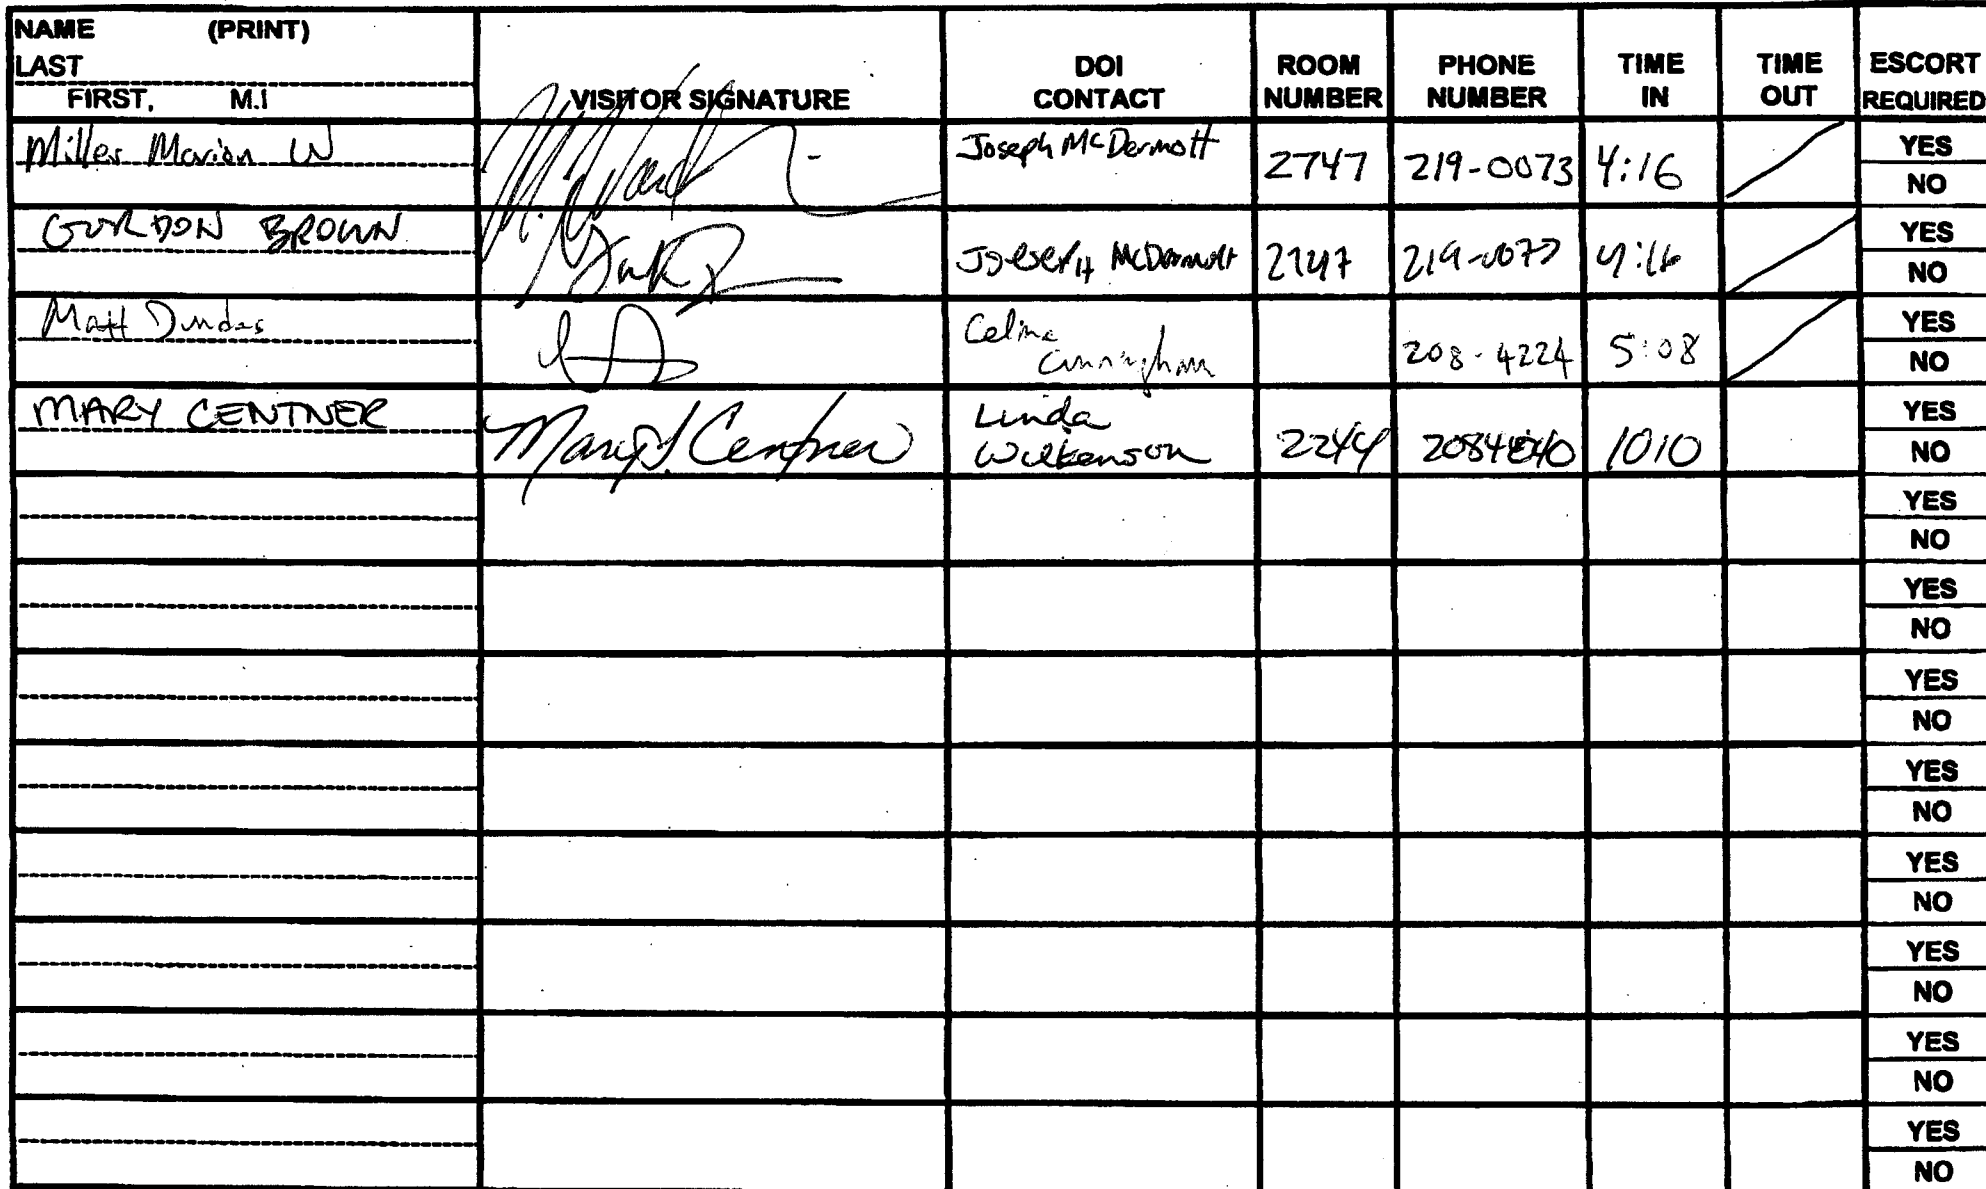 NAME (PRINT)
LAST
FIRST, M.I
VISITOR SIGNATURE
DOI CONTACT
ROOM NUMBER
PHONE NUMBER
TIME IN
TIME OUT
ESCORT REQUIRED
Miller Marion W
Joseph McDermott 2747 219-0073 4:16 YES
NO
GORDON BROWN
Joseph McDermott 2747 4:16 YES
NO
Matt Dundas
Celina Cunningham 208-4224 5:08 YES
NO
MARY CENTNER Mary J. Centner
Linda Wilkenson 2244 1010 YES
NO
YES
NO
YES
NO
YES
NO
YES
NO
YES
NO
YES
NO
YES
NO
YES
NO